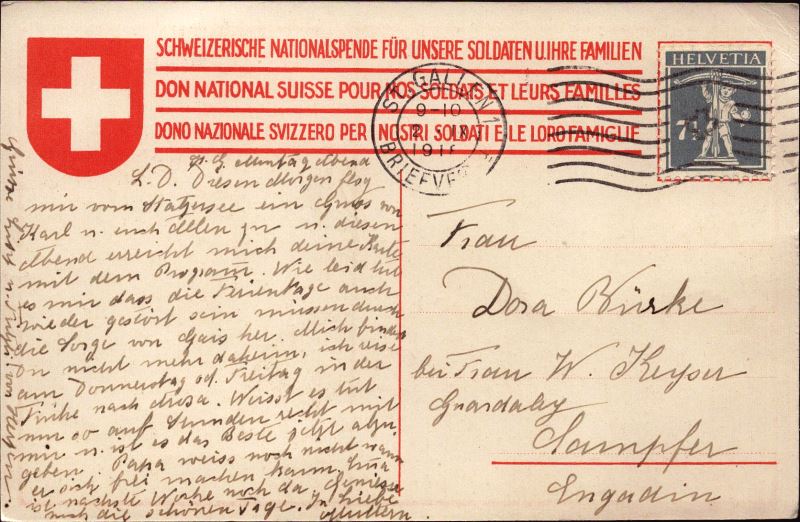 SCHWEIZERISCHE NATIONALSPENDE FÜR UNSERE SOLDATEN U. IHRE FAMILIEN
DON NATIONAL SUISSE POUR NOS SOLDATS ET LEURS FAMILLES
DONO NAZIONALE SVIZZERO PER I NOSTRI SOLDATI E LE LORO FAMIGLIE
HELVETIA
7½
ST. GALLEN 1
9-10
2. IX
191
BRIEFVE
St. G. Montag Abend
L. D. Diesen Morgen flog
mir vom Statzersee ein Gruss von
Karl u. euch allen zu u. diesen
Abend erreicht mich deine Karte
mit dem Program. Wie leid tut
es mir dass die Ferientage auch
wieder gestört sein müssen durch
die Sorge von Gais her. Mich findest
Du nicht mehr daheim, ich reise
am Donnerstag od. Freitag in der
Frühe nach Arosa. Weisst es tut
nur so auf Stunden recht mit
mir u. ist es das Beste jetzt abzu-
geben. Papa weiss noch nicht wann
er sich frei machen kann,
ist nächste Woche noch da. Geniesse
noch die schönen Tage. In Liebe
Muttern
Frau
Dora Bürke
bei Frau W. Keyser
Guardaley
Campfer
Engadin